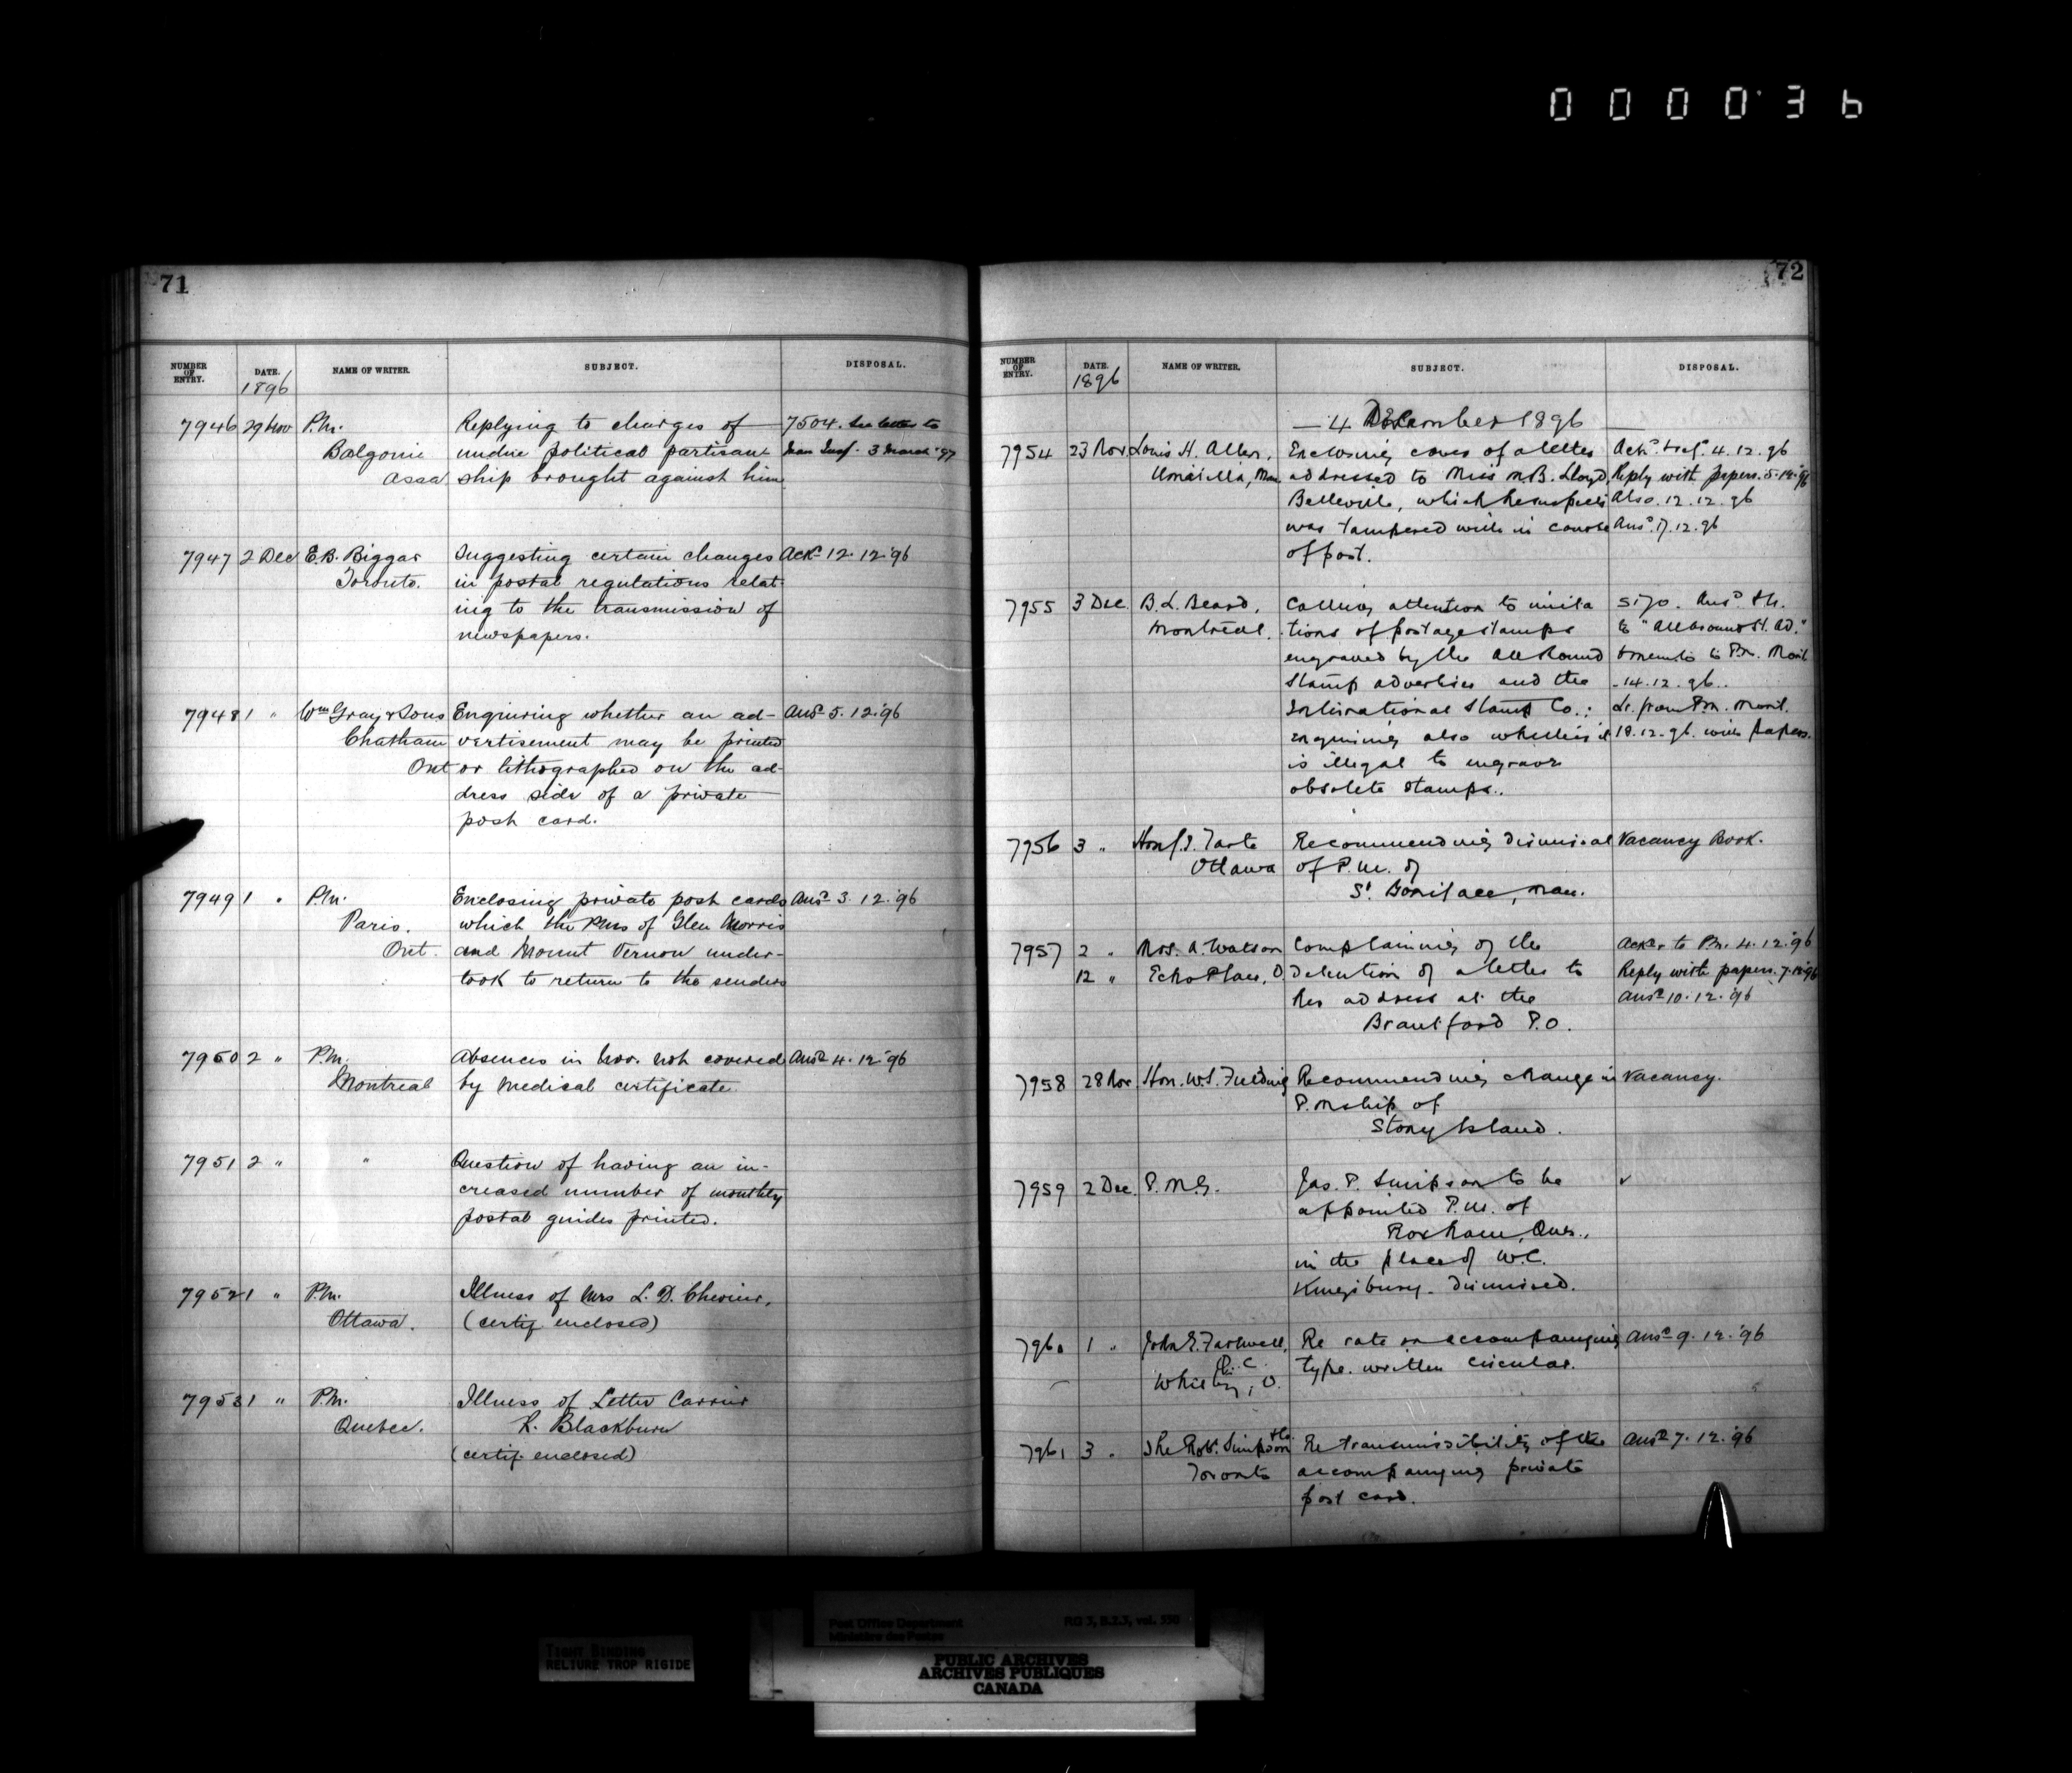 000036
71
NUMBER OF ENTRY. DATE. NAME OF WRITER. SUBJECT. DISPOSAL.
1896
7946 29 Nov P.M. Replying to charges of 7504. See letter to
Balgonie undue political partisan- 3 March '97
Assa ship brought against him
7947 2 Dec E.B. Biggar Suggesting certain changes Ackd 12.12.'96
Toronto. in postal regulations relat-
ing to the transmission of
newspapers.
7948 1 " Wm Gray & Sons Enquiring whether an ad- Ansd 5.12.'96
Chatham vertisement may be printed
Ont or lithographed on the ad-
dress side of a private
post card.
7949 1 " P.M. Enclosing private post cards Ansd 3.12.'96
Paris. which the PMs of Glen Morris
Ont. and Mount Vernon under-
took to return to the senders
7950 2 " P.M. Absences in Nov. not covered Ansd 4.12.'96
Montreal by medical certificate
7951 2 " " Question of having an in-
creased number of monthly
postal guides printed.
7952 1 " P.M. Illness of Mrs L. D. Chevrier,
Ottawa. (certif enclosed)
7953 1 " P.M. Illness of Letter Carrier
Quebec. R. Blackburn
(certif. enclosed)
72
NUMBER OF ENTRY. DATE. NAME OF WRITER. SUBJECT. DISPOSAL.
1896
— 4 December 1896 —
7954 23 Nov. Louis H. Allen, Enclosing cover of a letter 4.12.96
Man addressed to Miss M.B. Lloyd, Reply with papers. 5.12.'96
Belleville, which he suspects Also. 12.12.96
was tampered with in course Ansd. 17.12.96
of post.
7955 3 Dec. B.L. Beard, Calling attention to imita 5170. Ansd.
Montreal. tions of postage stamps to "All Around St. Ad."
engraved by the All Round & memo to P.M. Montl
Stamp advertiser and the - 14.12.96..
International Stamp Co.; Lr. from P.M. Montl.
enquiring also whether it 18.12.96. with papers.
is illegal to engrave
obsolete stamps..
7956 3 " Hon J.I. Tarte Recommending dismissal Vacancy Book.
Ottawa of P.M. of
St. Boniface, Man.
7957 2 " Mrs. A. Watson Complaining of the Ackd & to P.M. 4.12.'96
12 " Echo Place, O. detention of a letter to Reply with papers. 7.12.'96
her address at the Ansd 10.12.'96
Brantford P.O.
7958 28 Nov. Hon. W.S. Fielding Recommending change in Vacancy.
P.Mship of
Stony Island.
7959 2 Dec. P.M.G. Jas. P. Simpson to be ✓
appointed P.M. of
Roxham, Que.,
in the place of W.C.
Kingsbury - dismissed.
7960 1 " John E. Farewell, Re rate on accompanying Ansd 9.12.'96
Q.C. type-written circular.
Whitby, O.
7961 3 " The Robt. Simpson Re transmissibility of the Ansd 7.12.'96
Toronto accompanying private
post card.
Post Office Department RG 3, B.2.3, vol. 550
Ministère des Postes
TIGHT BINDING
RELIURE TROP RIGIDE
PUBLIC ARCHIVES
ARCHIVES PUBLIQUES
CANADA